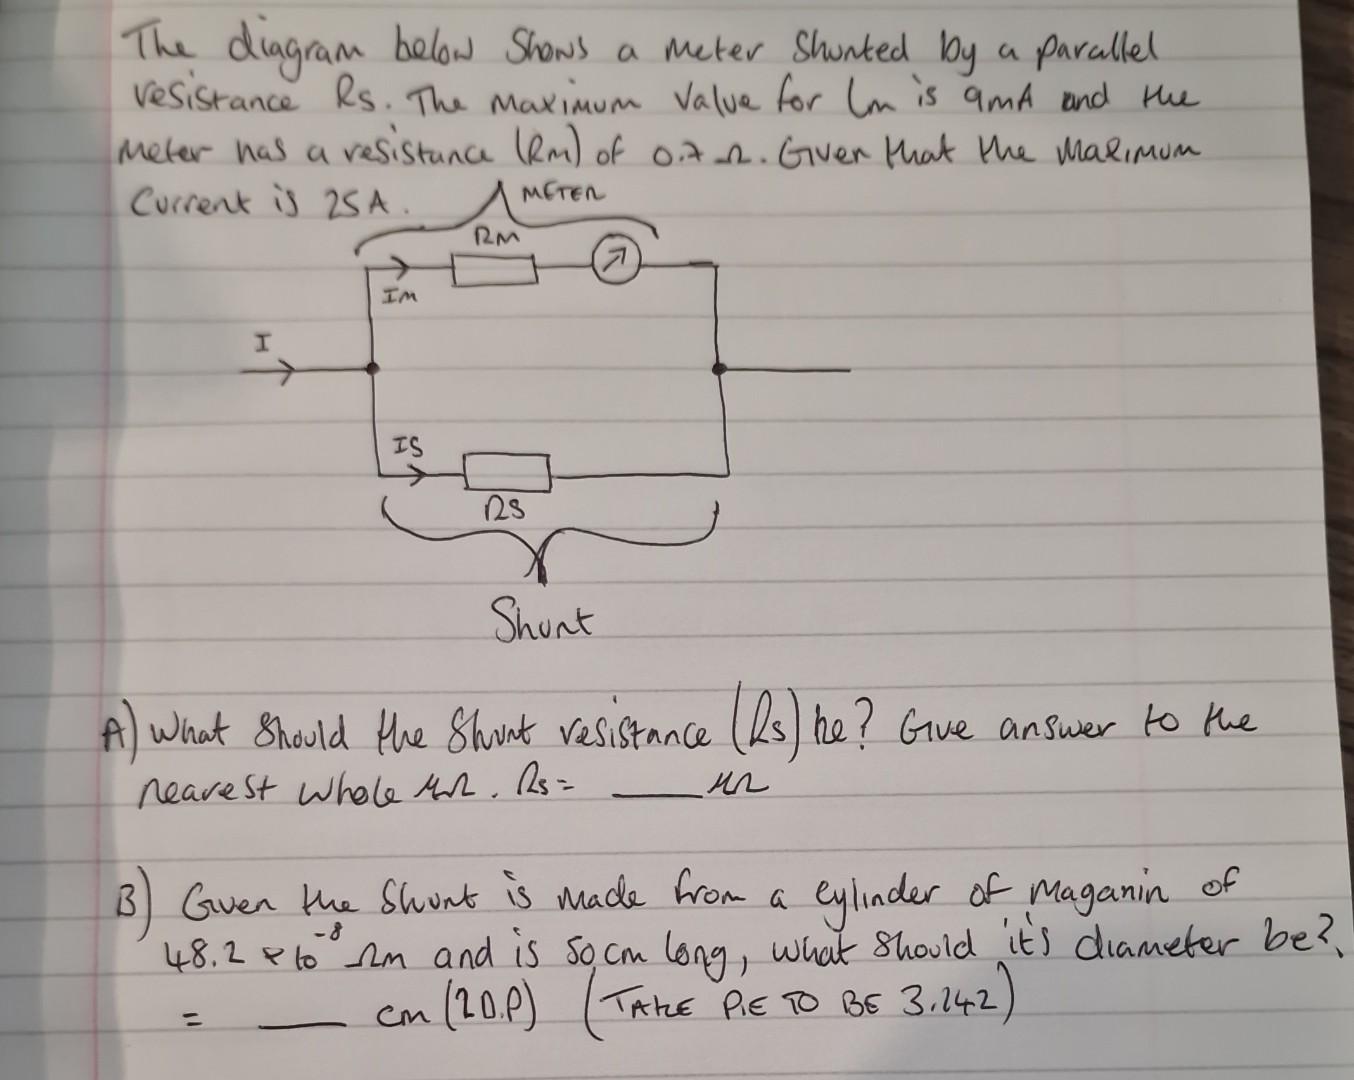 The diagram below Shows a meter Shunted by a parallel
resistance Rs. The maximum Value for Im is 9mA and the
Meter has a resistance (Rm) of 0.7 Ω. Given that the Maximum
Current is 25A.
METER
RM
IM
I
IS
RS
Shunt
A) What Should the Shunt resistance (Rs) be? Give answer to the
nearest whole μΩ. Rs= ____ μΩ
B) Given the Shunt is made from a cylinder of Maganin of
48.2 x 10⁻⁸ Ωm and is 50cm long, what should it's diameter be?
= ____ cm (2D.P) (TAKE PIE TO BE 3.142)